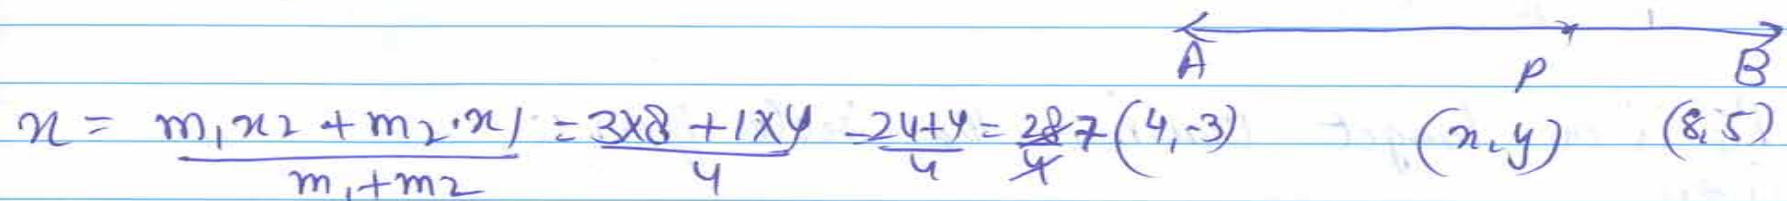 A P B
x = m1x2 + m2·x1 / m1+m2 = 3x8 + 1x4 / 4 = 24+4 / 4 = 28 / 4 7 (4,-3) (x,y) (8,5)